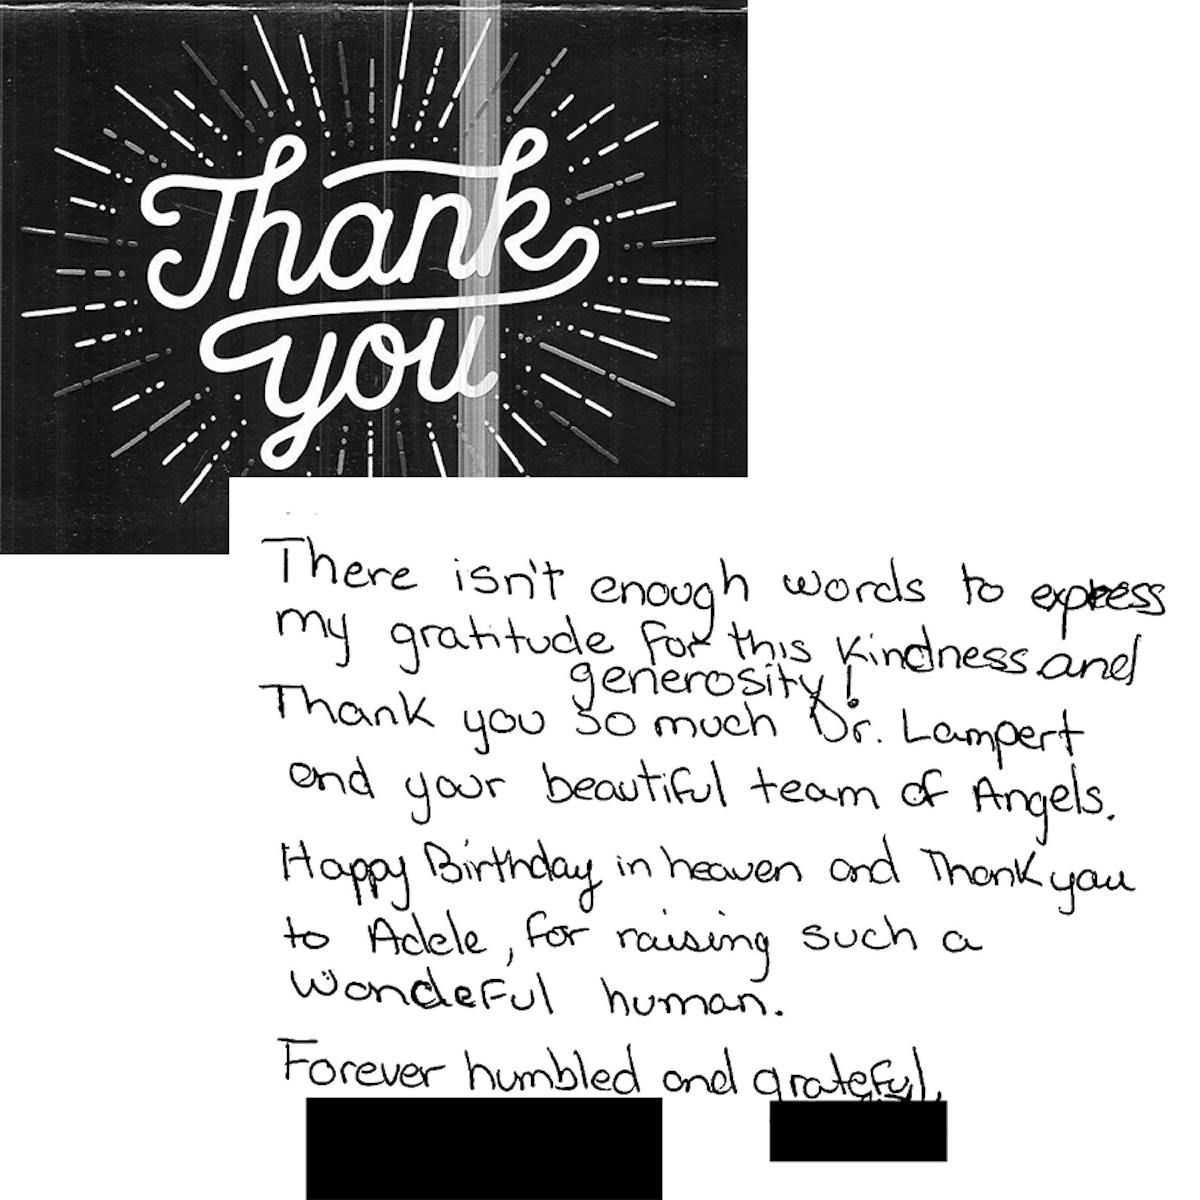 Thank
you
There isn't enough words to express
my gratitude for this kindness and
generosity!
Thank you so much Dr. Lampert
and your beautiful team of Angels.
Happy Birthday in heaven and Thank you
to Adele, for raising such a
wondeful human.
Forever humbled and grateful,